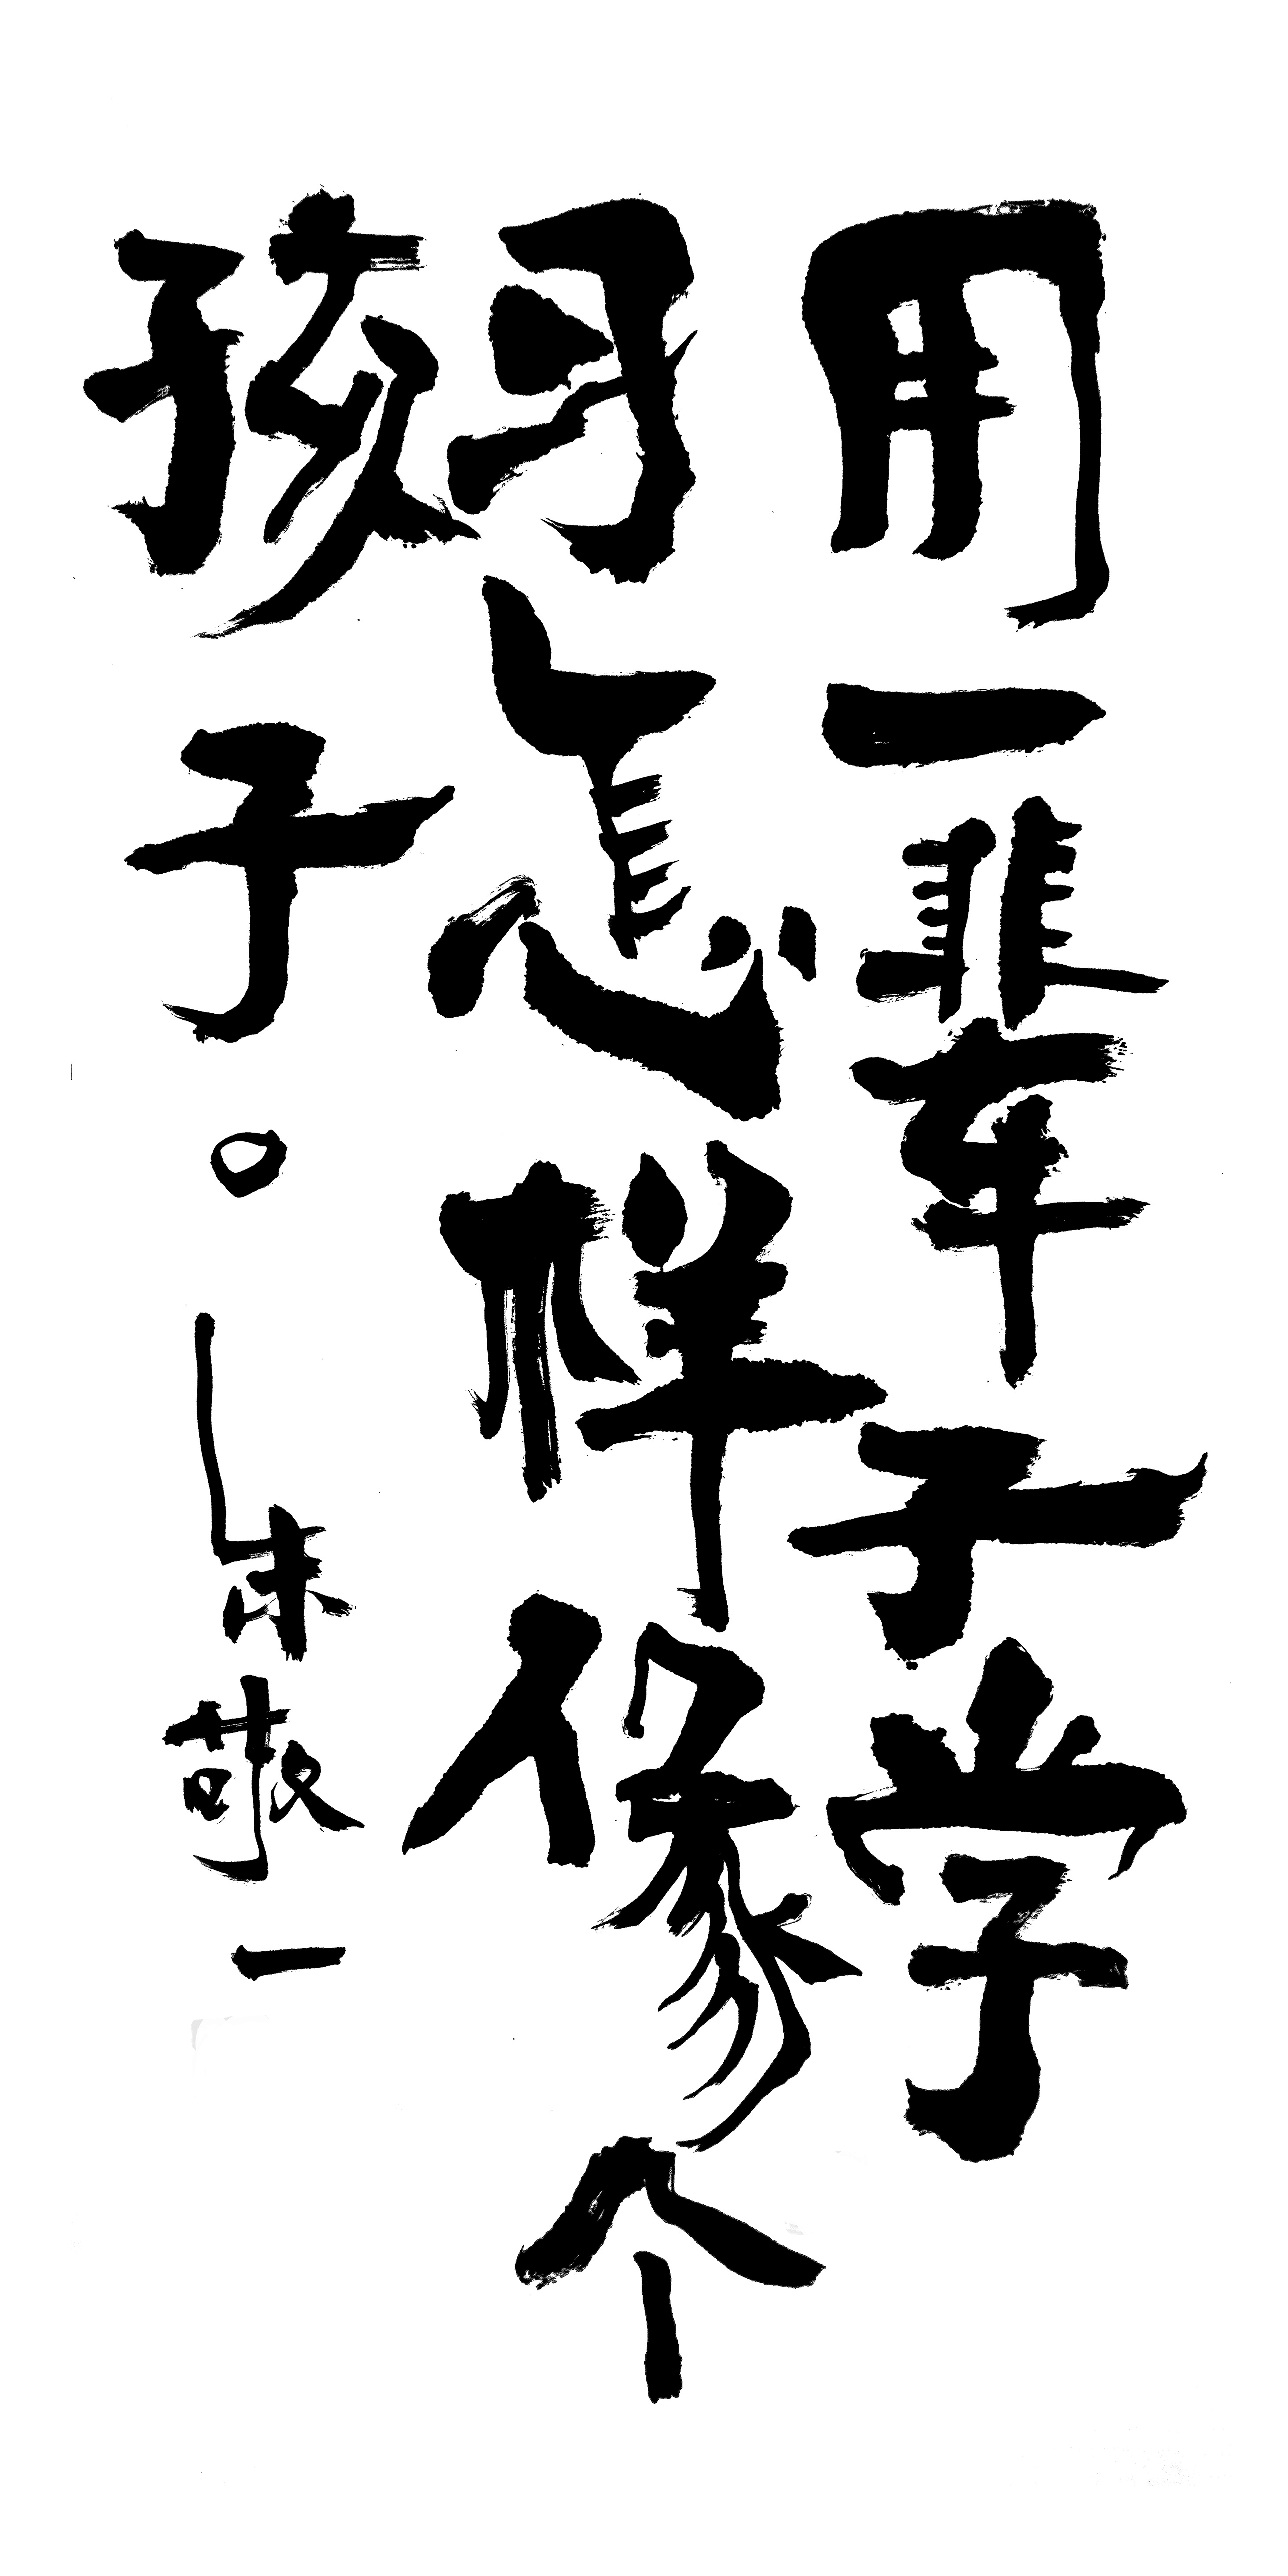 用一辈子学
习怎样像个
孩子。
朱敬一